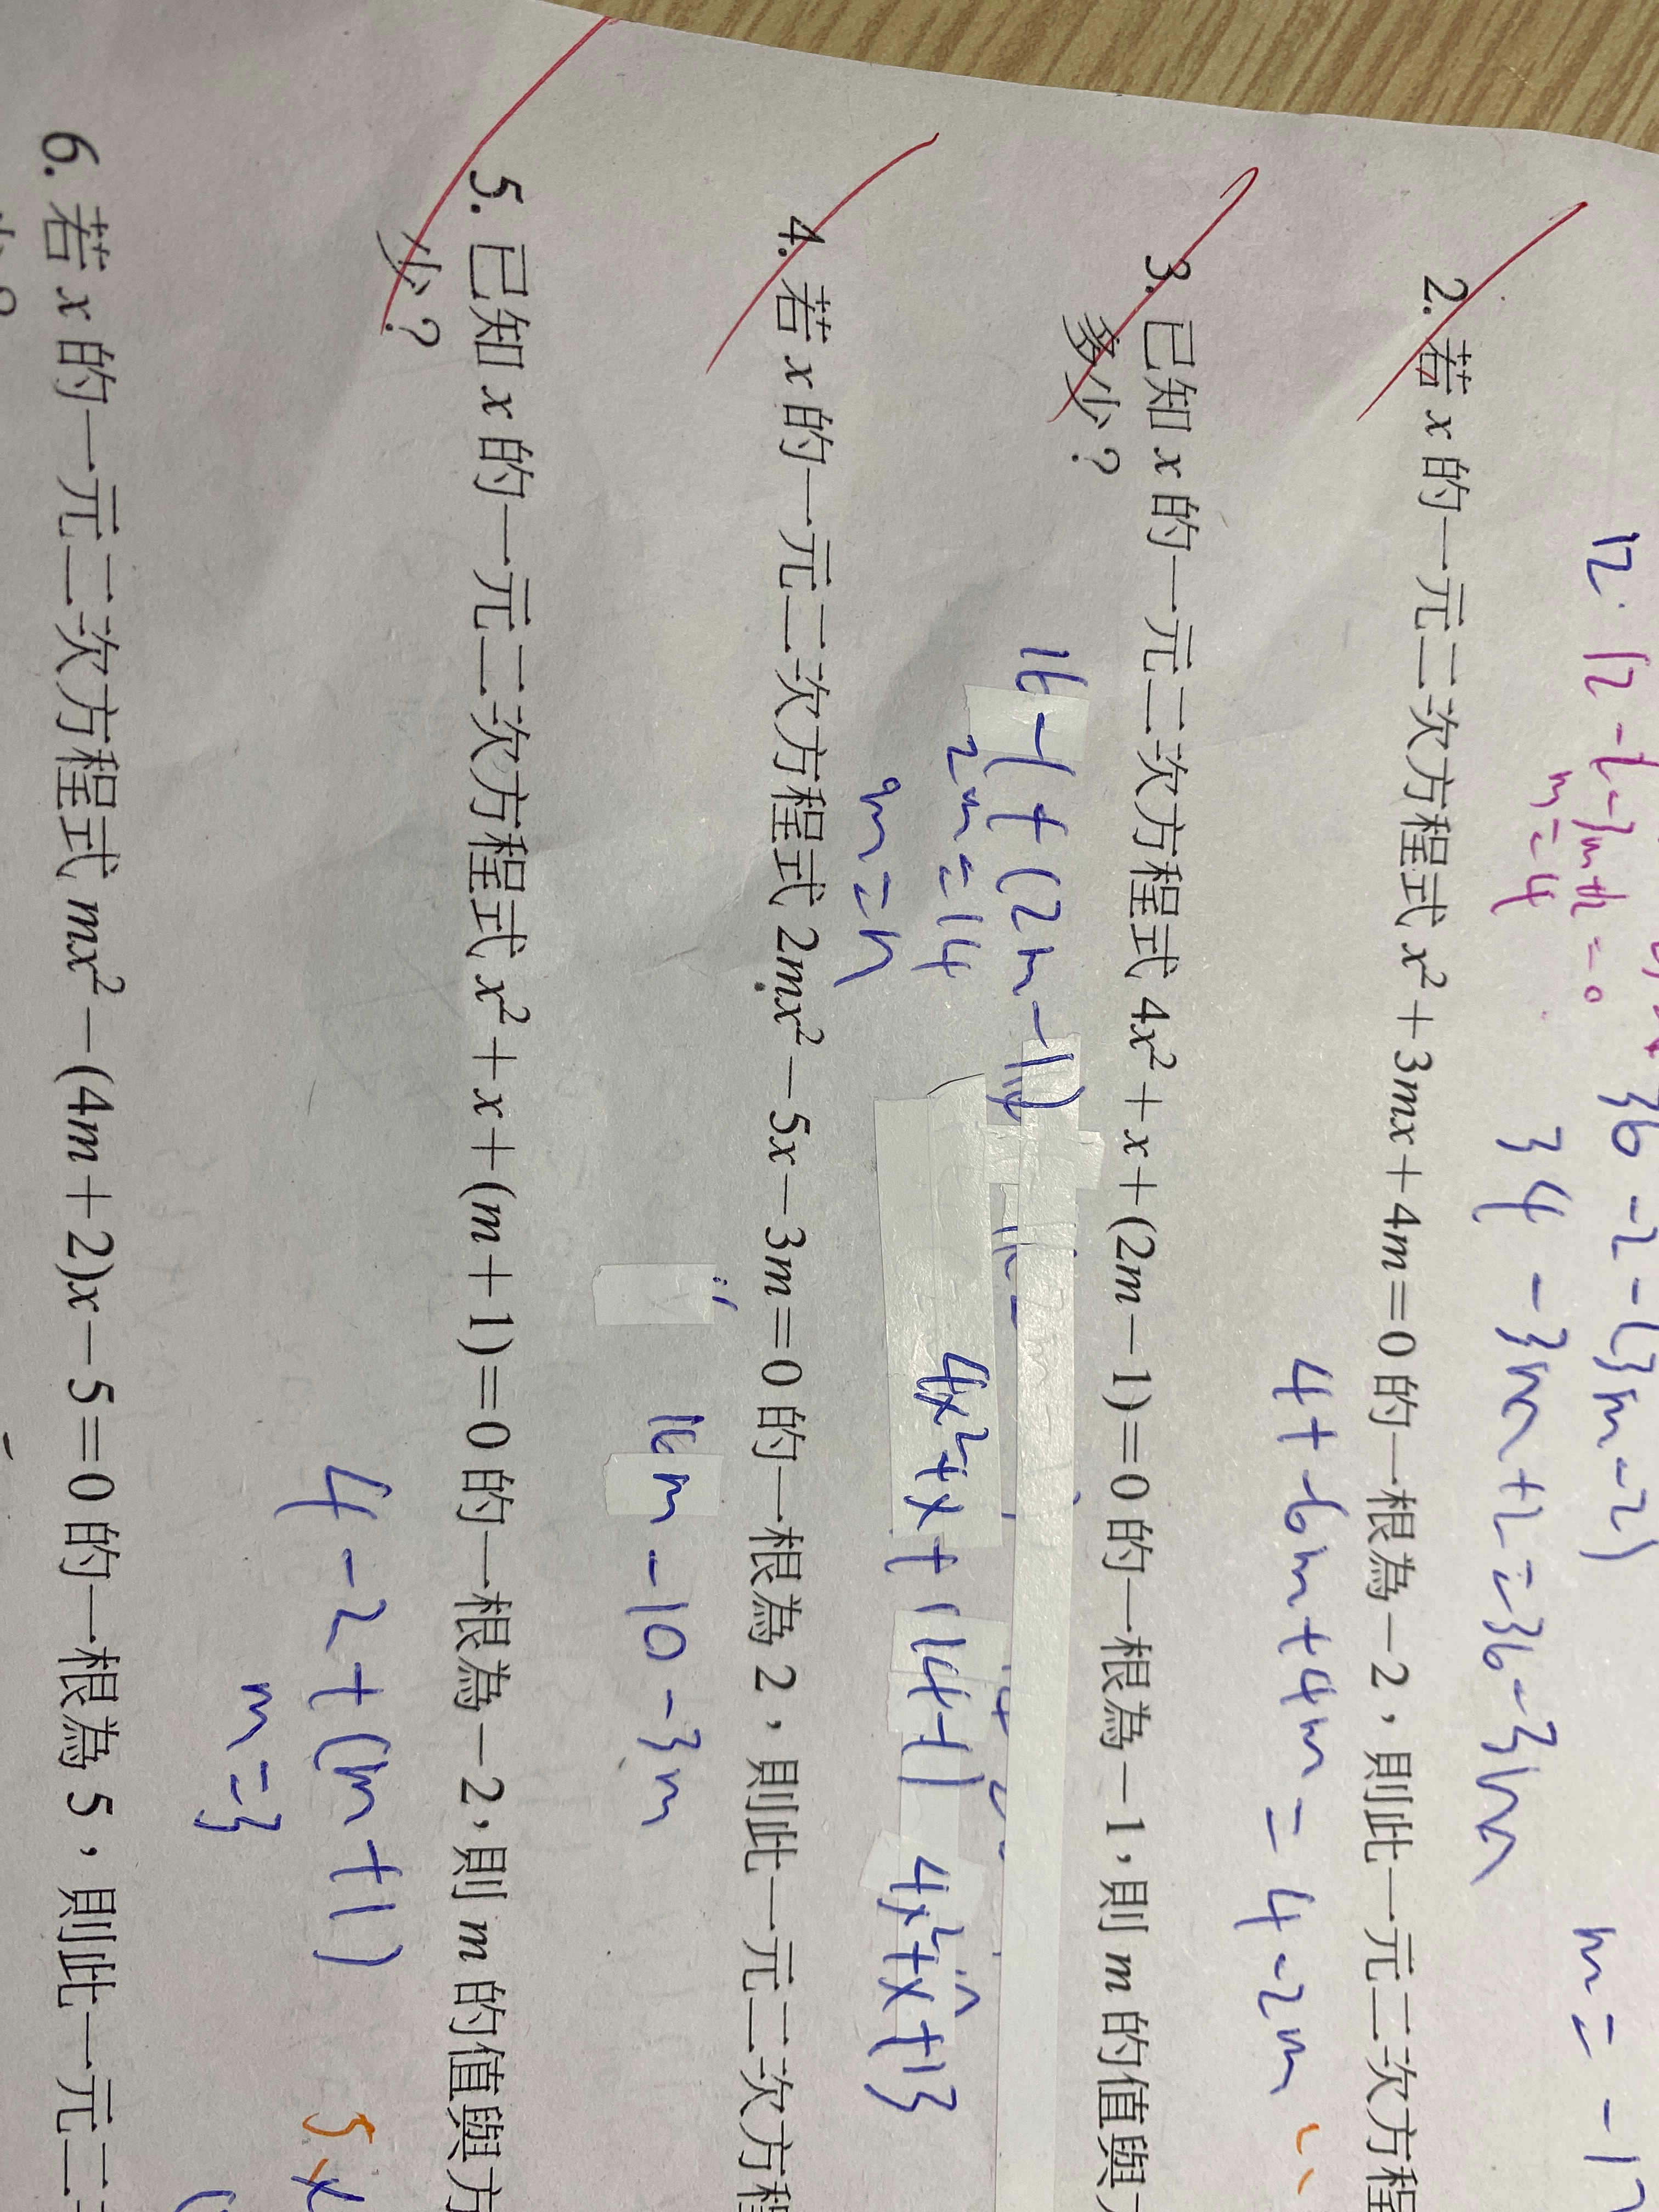 12. 12-1-3m+12=0
m=4
36-2-(3m-2)
34-3m+2=36-3m
2. 若 x 的一元二次方程式 x²+3mx+4m=0 的一根為-2，則此一元二次方程
4+-6m+4m=4-2m
3. 已知 x 的一元二次方程式 4x²+x+(2m-1)=0 的一根為-1，則 m 的值與
多少？
16-1+(2m-1)
2m=14
4x²+x+14-1 4x²+x+13
4. 若 x 的一元二次方程式 2mx²-5x-3m=0 的一根為 2，則此一元二次方程
16m-10-3m
5. 已知 x 的一元二次方程式 x²+x+(m+1)=0 的一根為-2，則 m 的值與方
少？
4-2+(m+1)
m=3
5x
6. 若 x 的一元二次方程式 mx²-(4m+2)x-5=0 的一根為 5，則此一元二